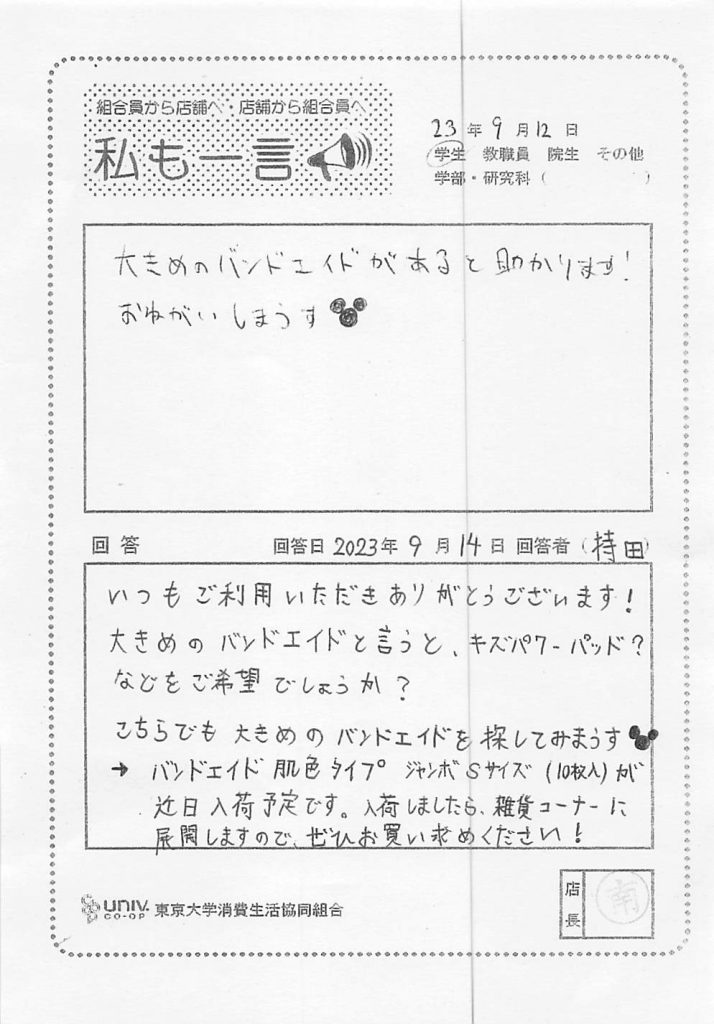 組合員から店舗へ・店舗から組合員へ
私も一言
23年9月12日
学生 教職員 院生 その他
学部・研究科( )
大きめのバンドエイドがあると助かります!
おねがいしまうす
回答 回答日 2023年9月14日 回答者(持田)
いつもご利用いただきありがとうございます!
大きめのバンドエイドと言うと、キズパワーパッド?
などをご希望でしょうか?
こちらでも大きめのバンドエイドを探してみまうす
→ バンドエイド 肌色タイプ ジャンボSサイズ (10枚入)が
近日入荷予定です。入荷しましたら、雑貨コーナーに
展開しますので、ぜひお買い求めください!
店長 南
UNIV. CO-OP 東京大学消費生活協同組合